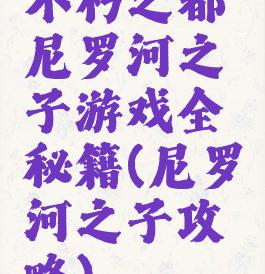 不朽之都
尼罗河之
子游戏全
秘籍(尼罗
河之子攻
略)